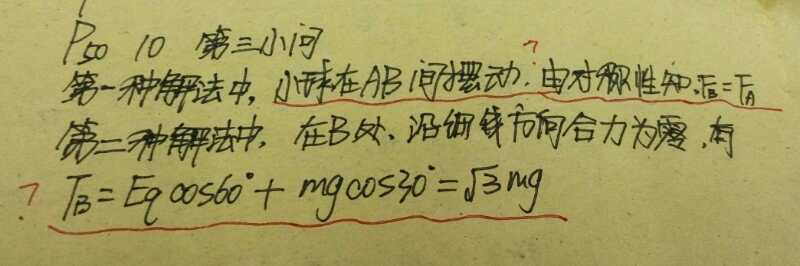 P50 10 第三小问
?
第一种解法中, 小球在AB间摆动. 由对称性知, TB=TA
第二种解法中, 在B处、沿细线方向合力为零, 有
? TB=Eq cos60°+mg cos30°=√3mg